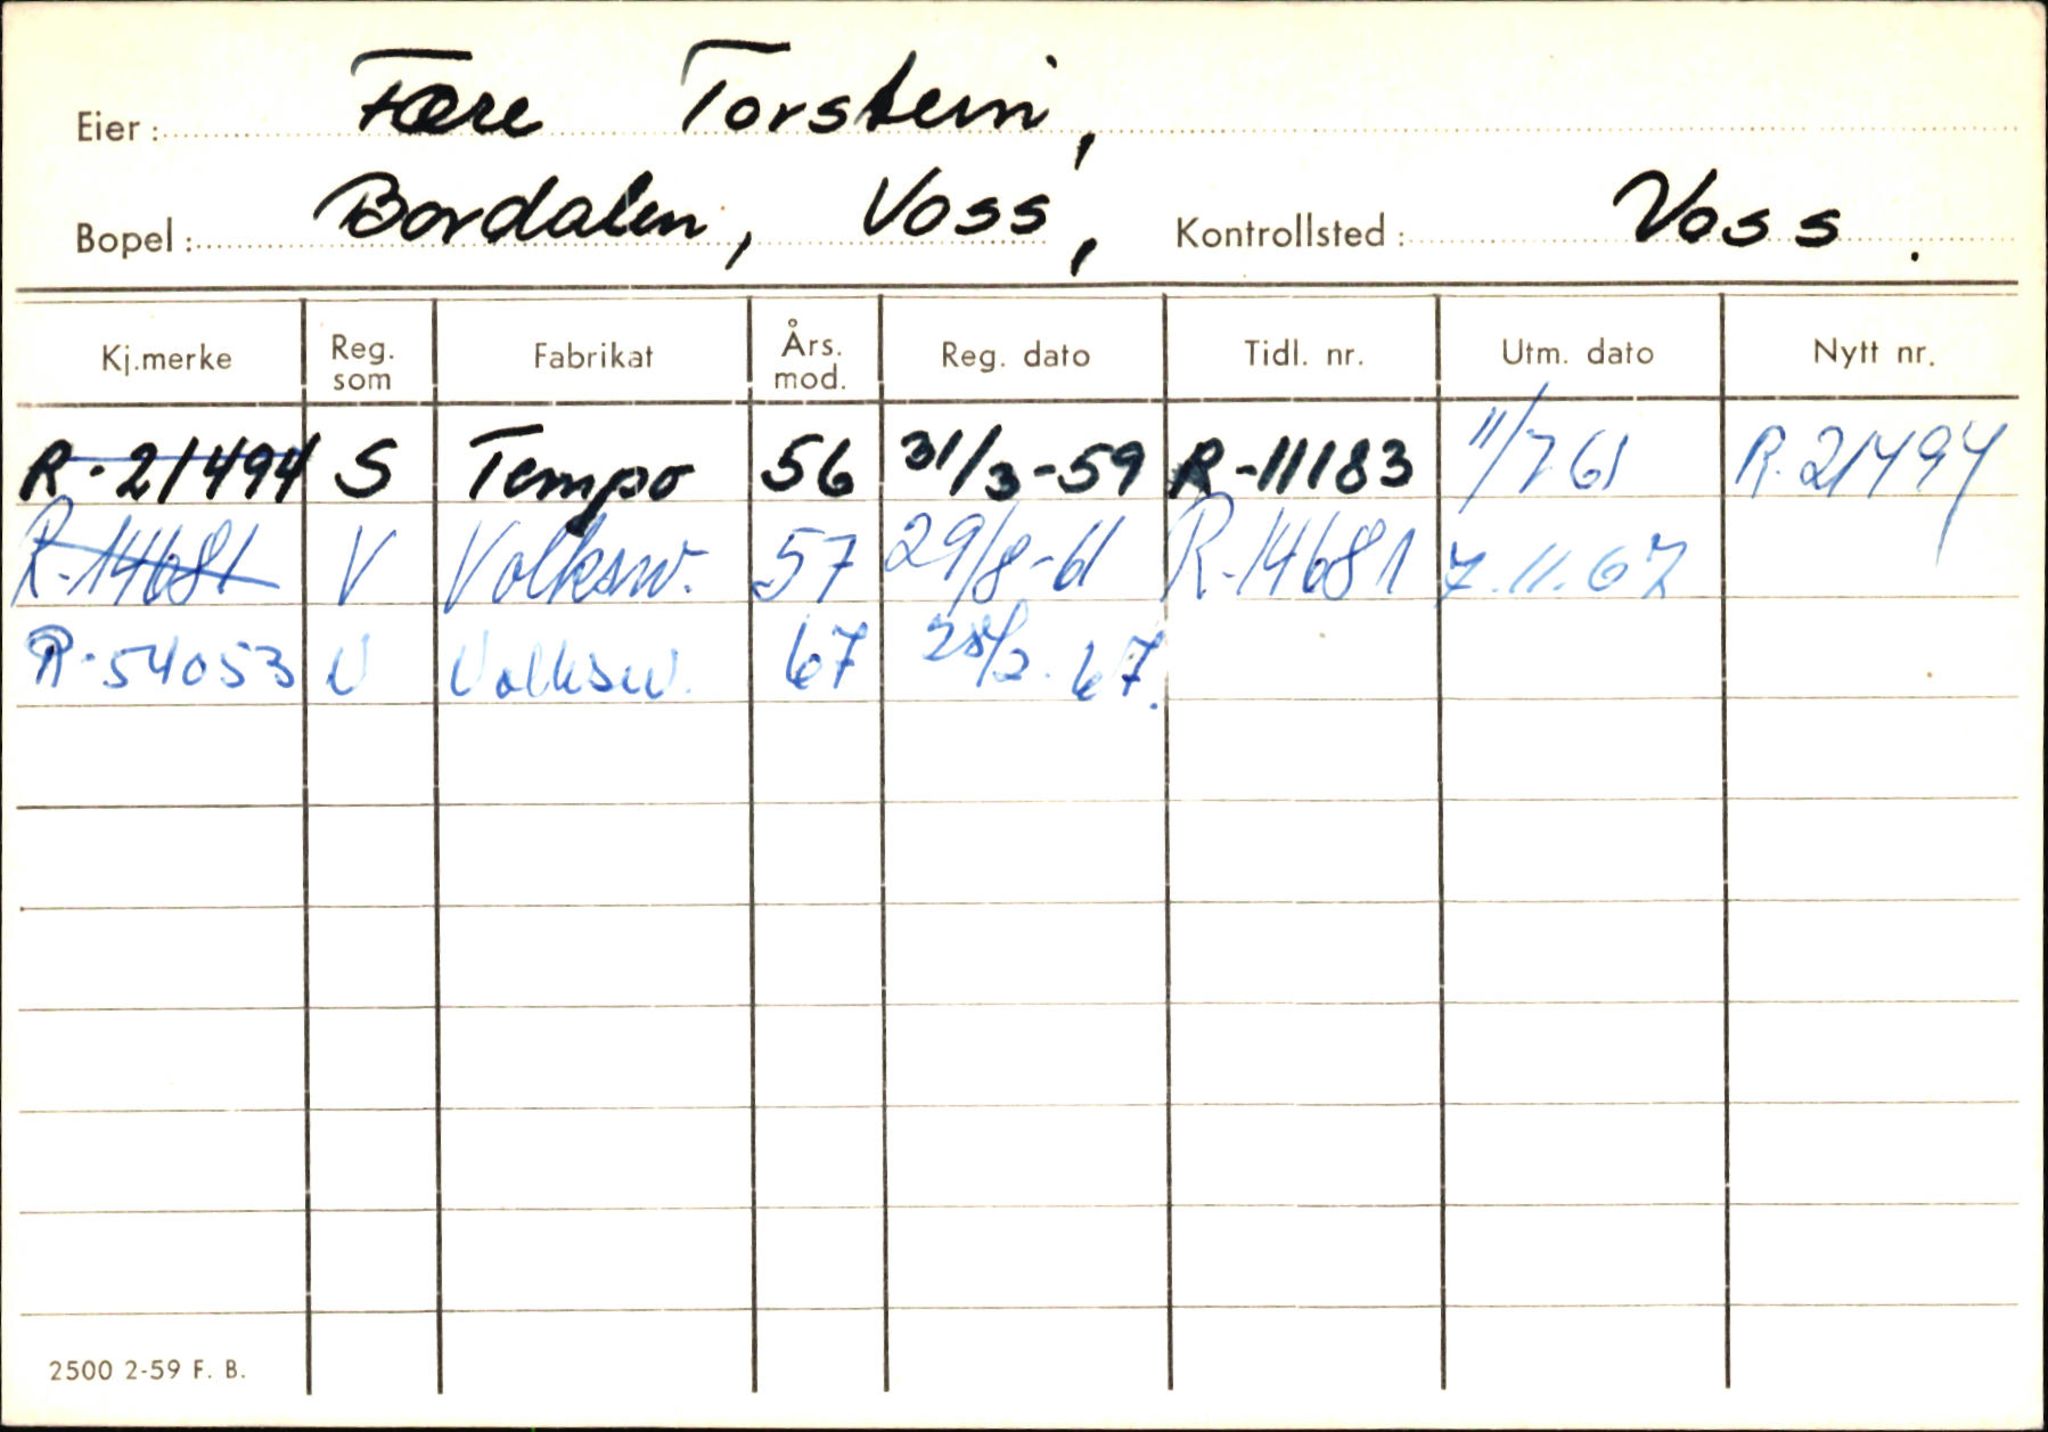 Eier: Fære Torstein,
Bopel: Bordalen, Voss, Kontrollsted: Voss.
Kj.merke Reg. som Fabrikat Års. mod. Reg. dato Tidl. nr. Utm. dato Nytt nr.
R-21494 S Tempo 56 31/3-59 R-11183 11/7 61 R-21494
R-14681 V Volksw. 57 29/8-61 R-14681 7.11.67
R-54053 V Volksw. 67 67.
2500 2-59 F. B.